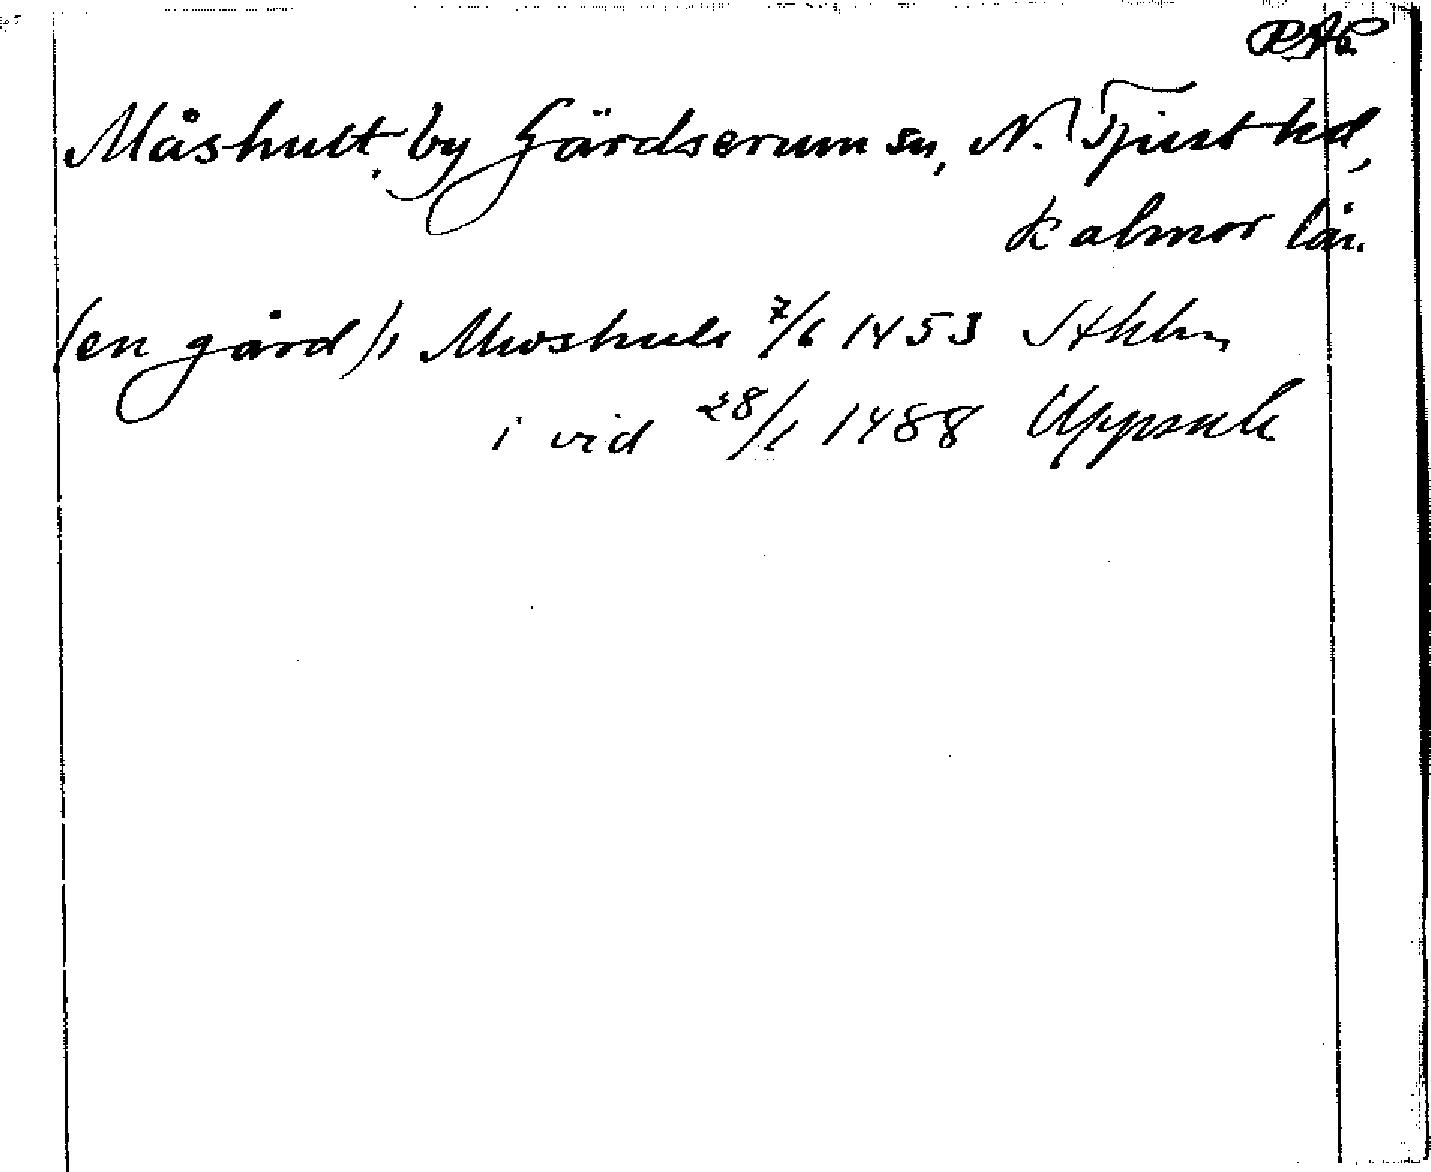 RAp.
Måshult, by Gärdserum sn, N. Tjust hd,
Kalmar län.
(en gård) i Moshule 7/6 1453 Sthlm
i vid 28/1 1488 Uppsala